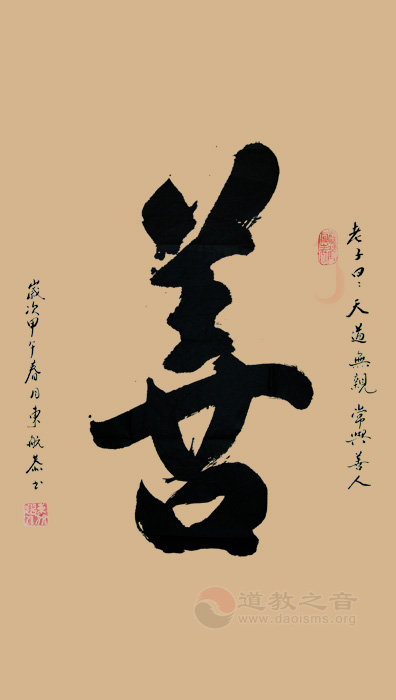 老子曰：天道無親常與善人
善
歲次甲午春月東航恭书
道教之音
www.daoisms.org